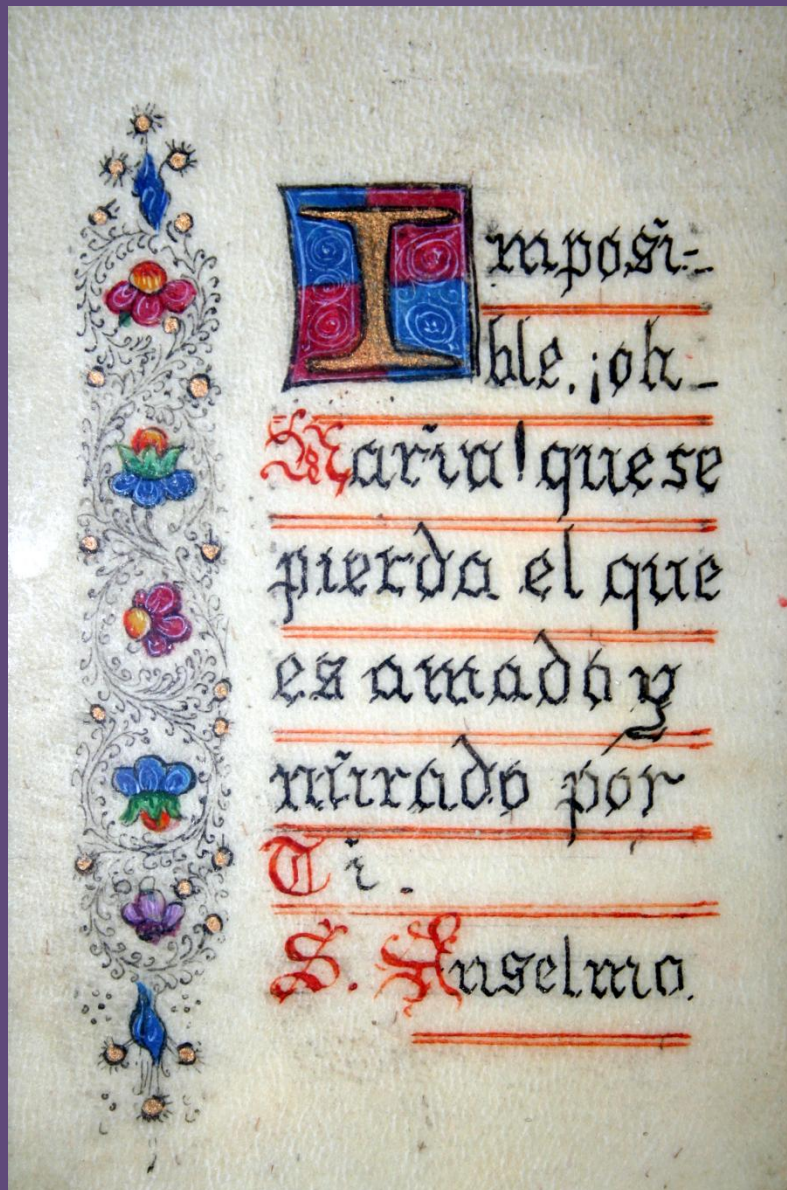 Imposi-
ble, ¡oh
Maria! que se
pierda el que
es amado y
mirado por
Ti.
S. Anselmo.